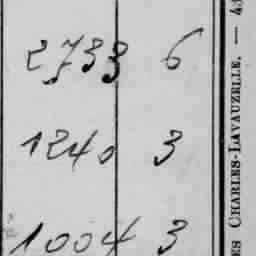 2733 6
1240 3
1004 3
ES CHARLES-LAVAUZELLE. — 43